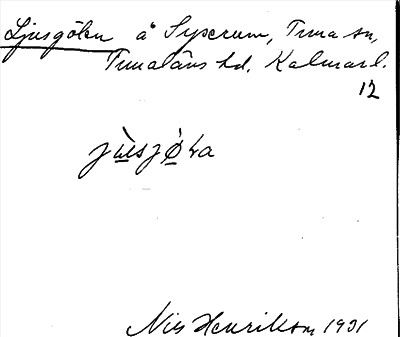 Ljusgölen å Syserum, Tuna sn,
Tunaläns hd. Kalmar l.
12
jùsjö̀la
Nils Henrikson 1931